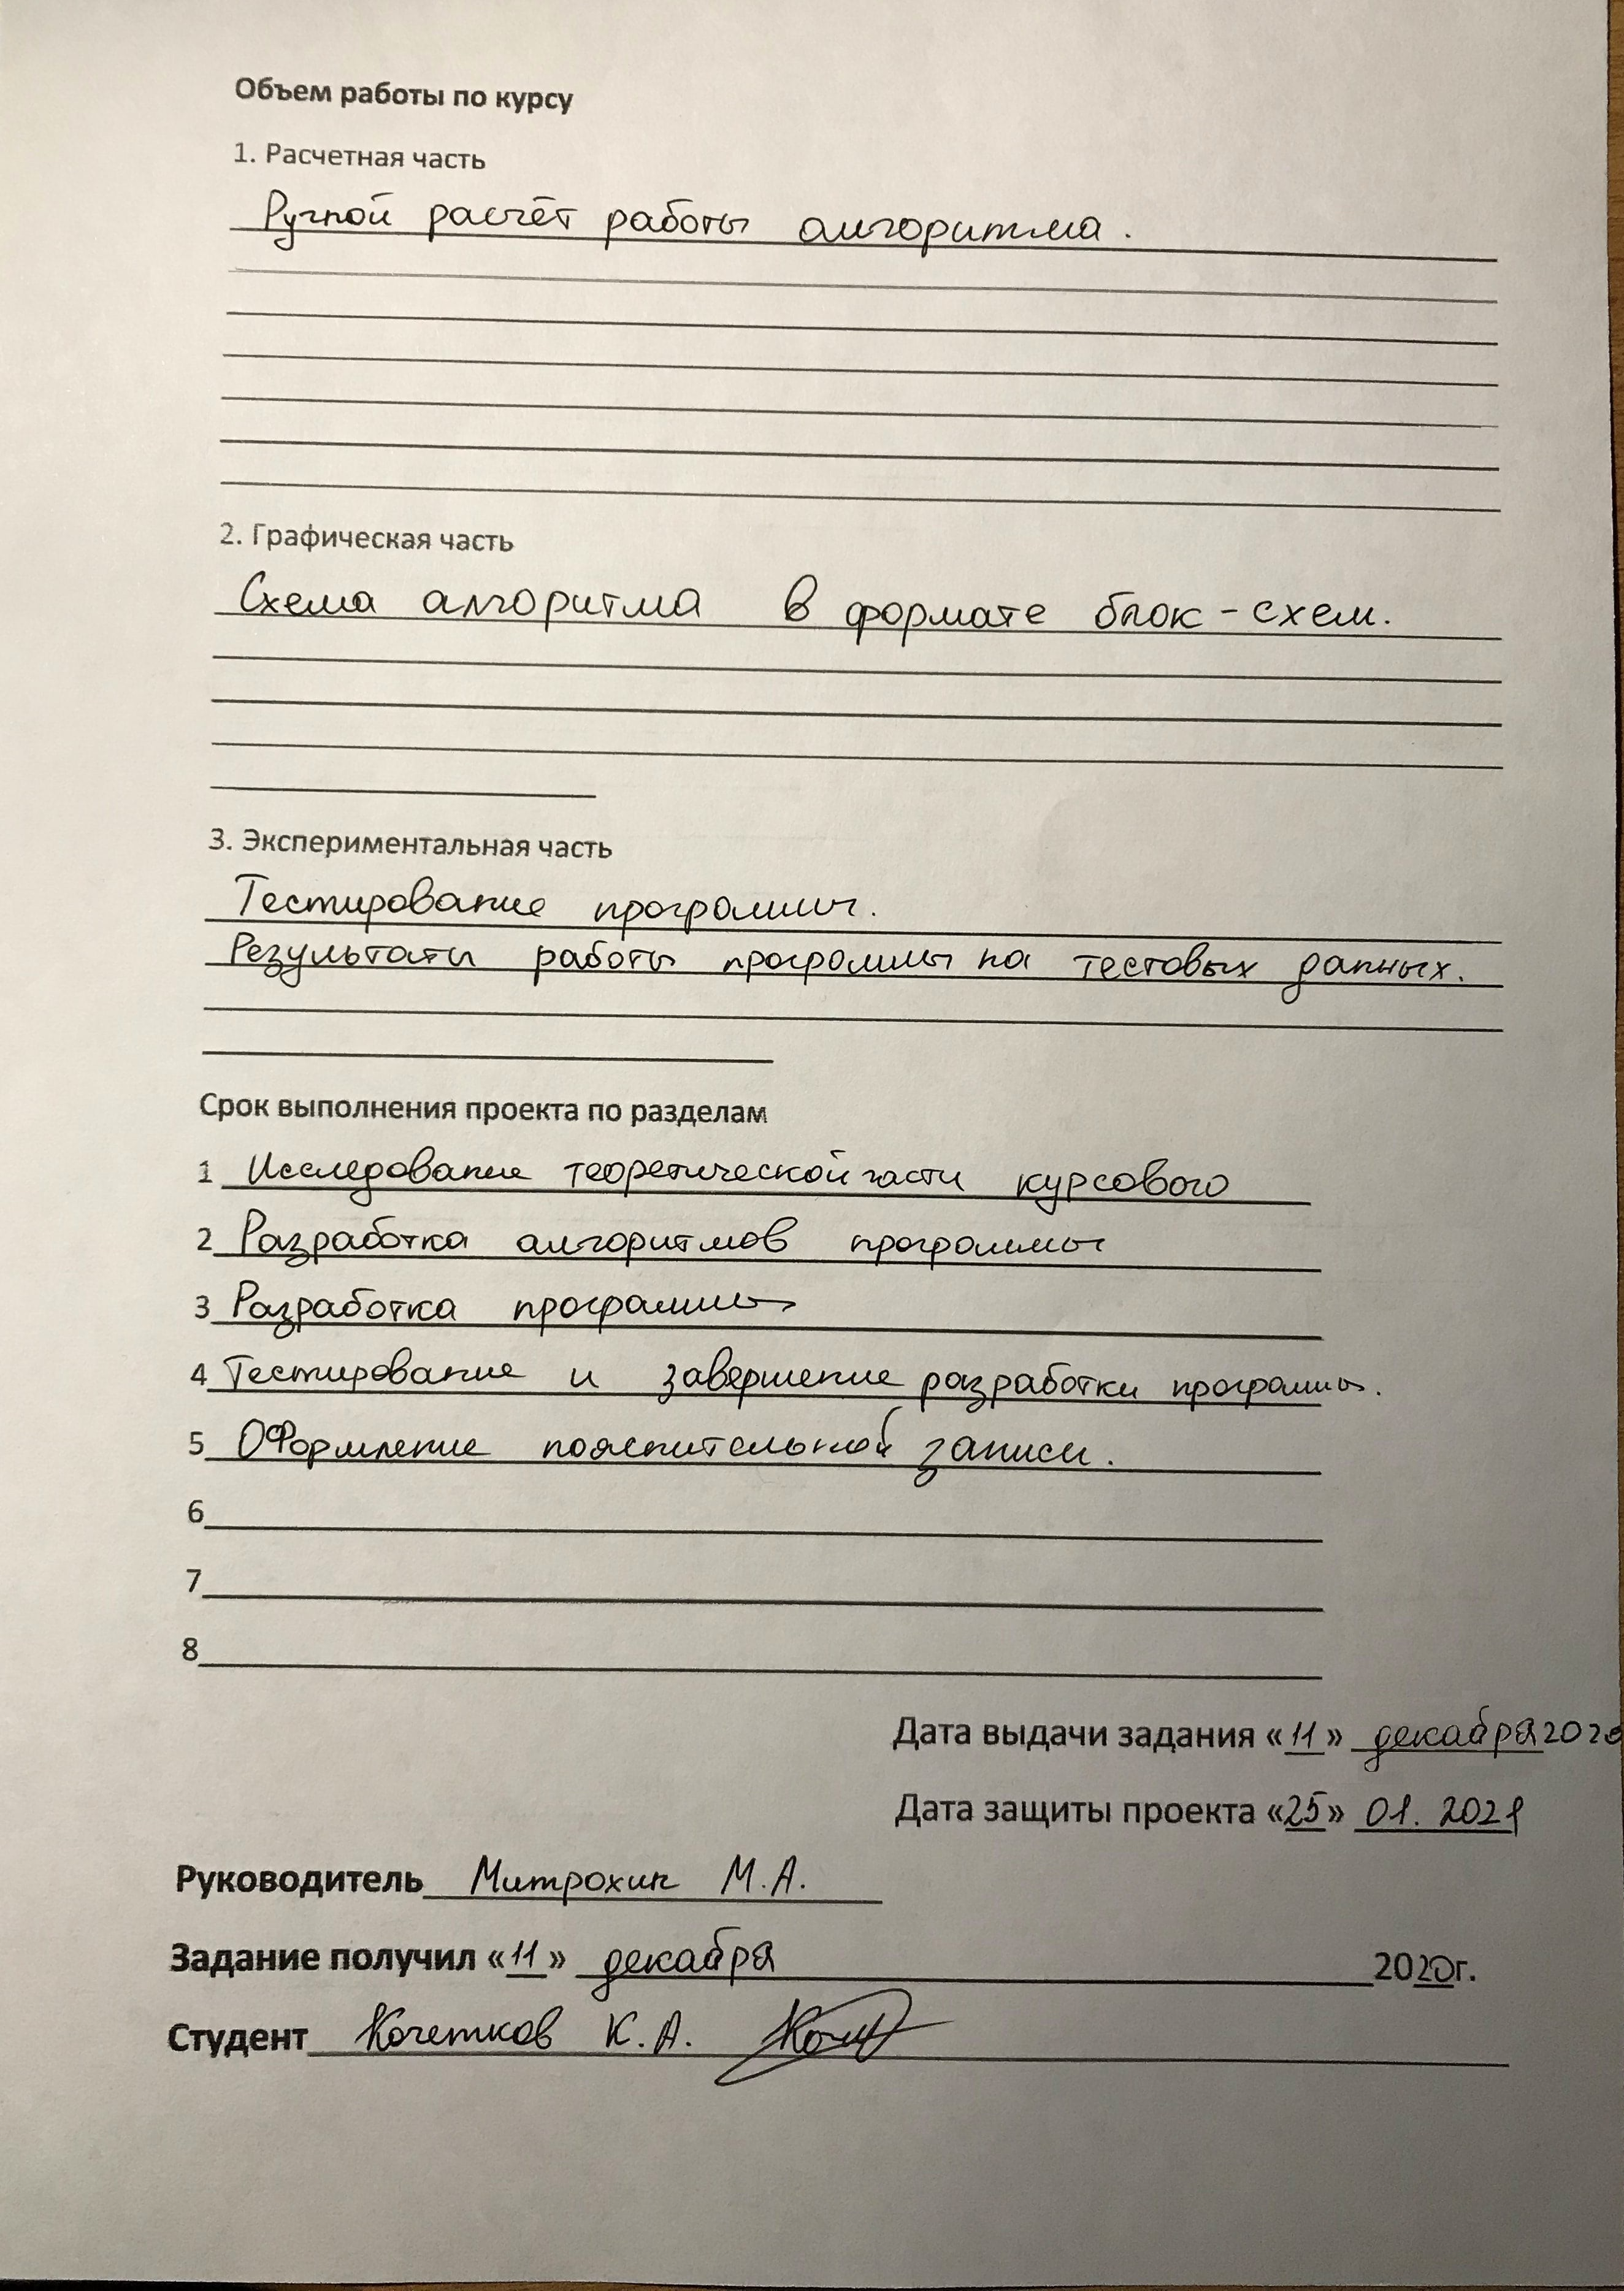 Объем работы по курсу
1. Расчетная часть
Ручной расчёт работы алгоритма.
2. Графическая часть
Схема алгоритма в формате блок-схем.
3. Экспериментальная часть
Тестирование программы.
Результаты работы программы на тестовых данных.
Срок выполнения проекта по разделам
1 Исследование теоретической части курсового
2 Разработка алгоритмов программы
3 Разработка программы
4 Тестирование и завершение разработки программы.
5 Оформление пояснительной записи.
6
7
8
Дата выдачи задания «11» декабря 2020
Дата защиты проекта «25» 01. 2021
Руководитель Митрохин М.А.
Задание получил «11» декабря 2020г.
Студент Кочетков К.А.